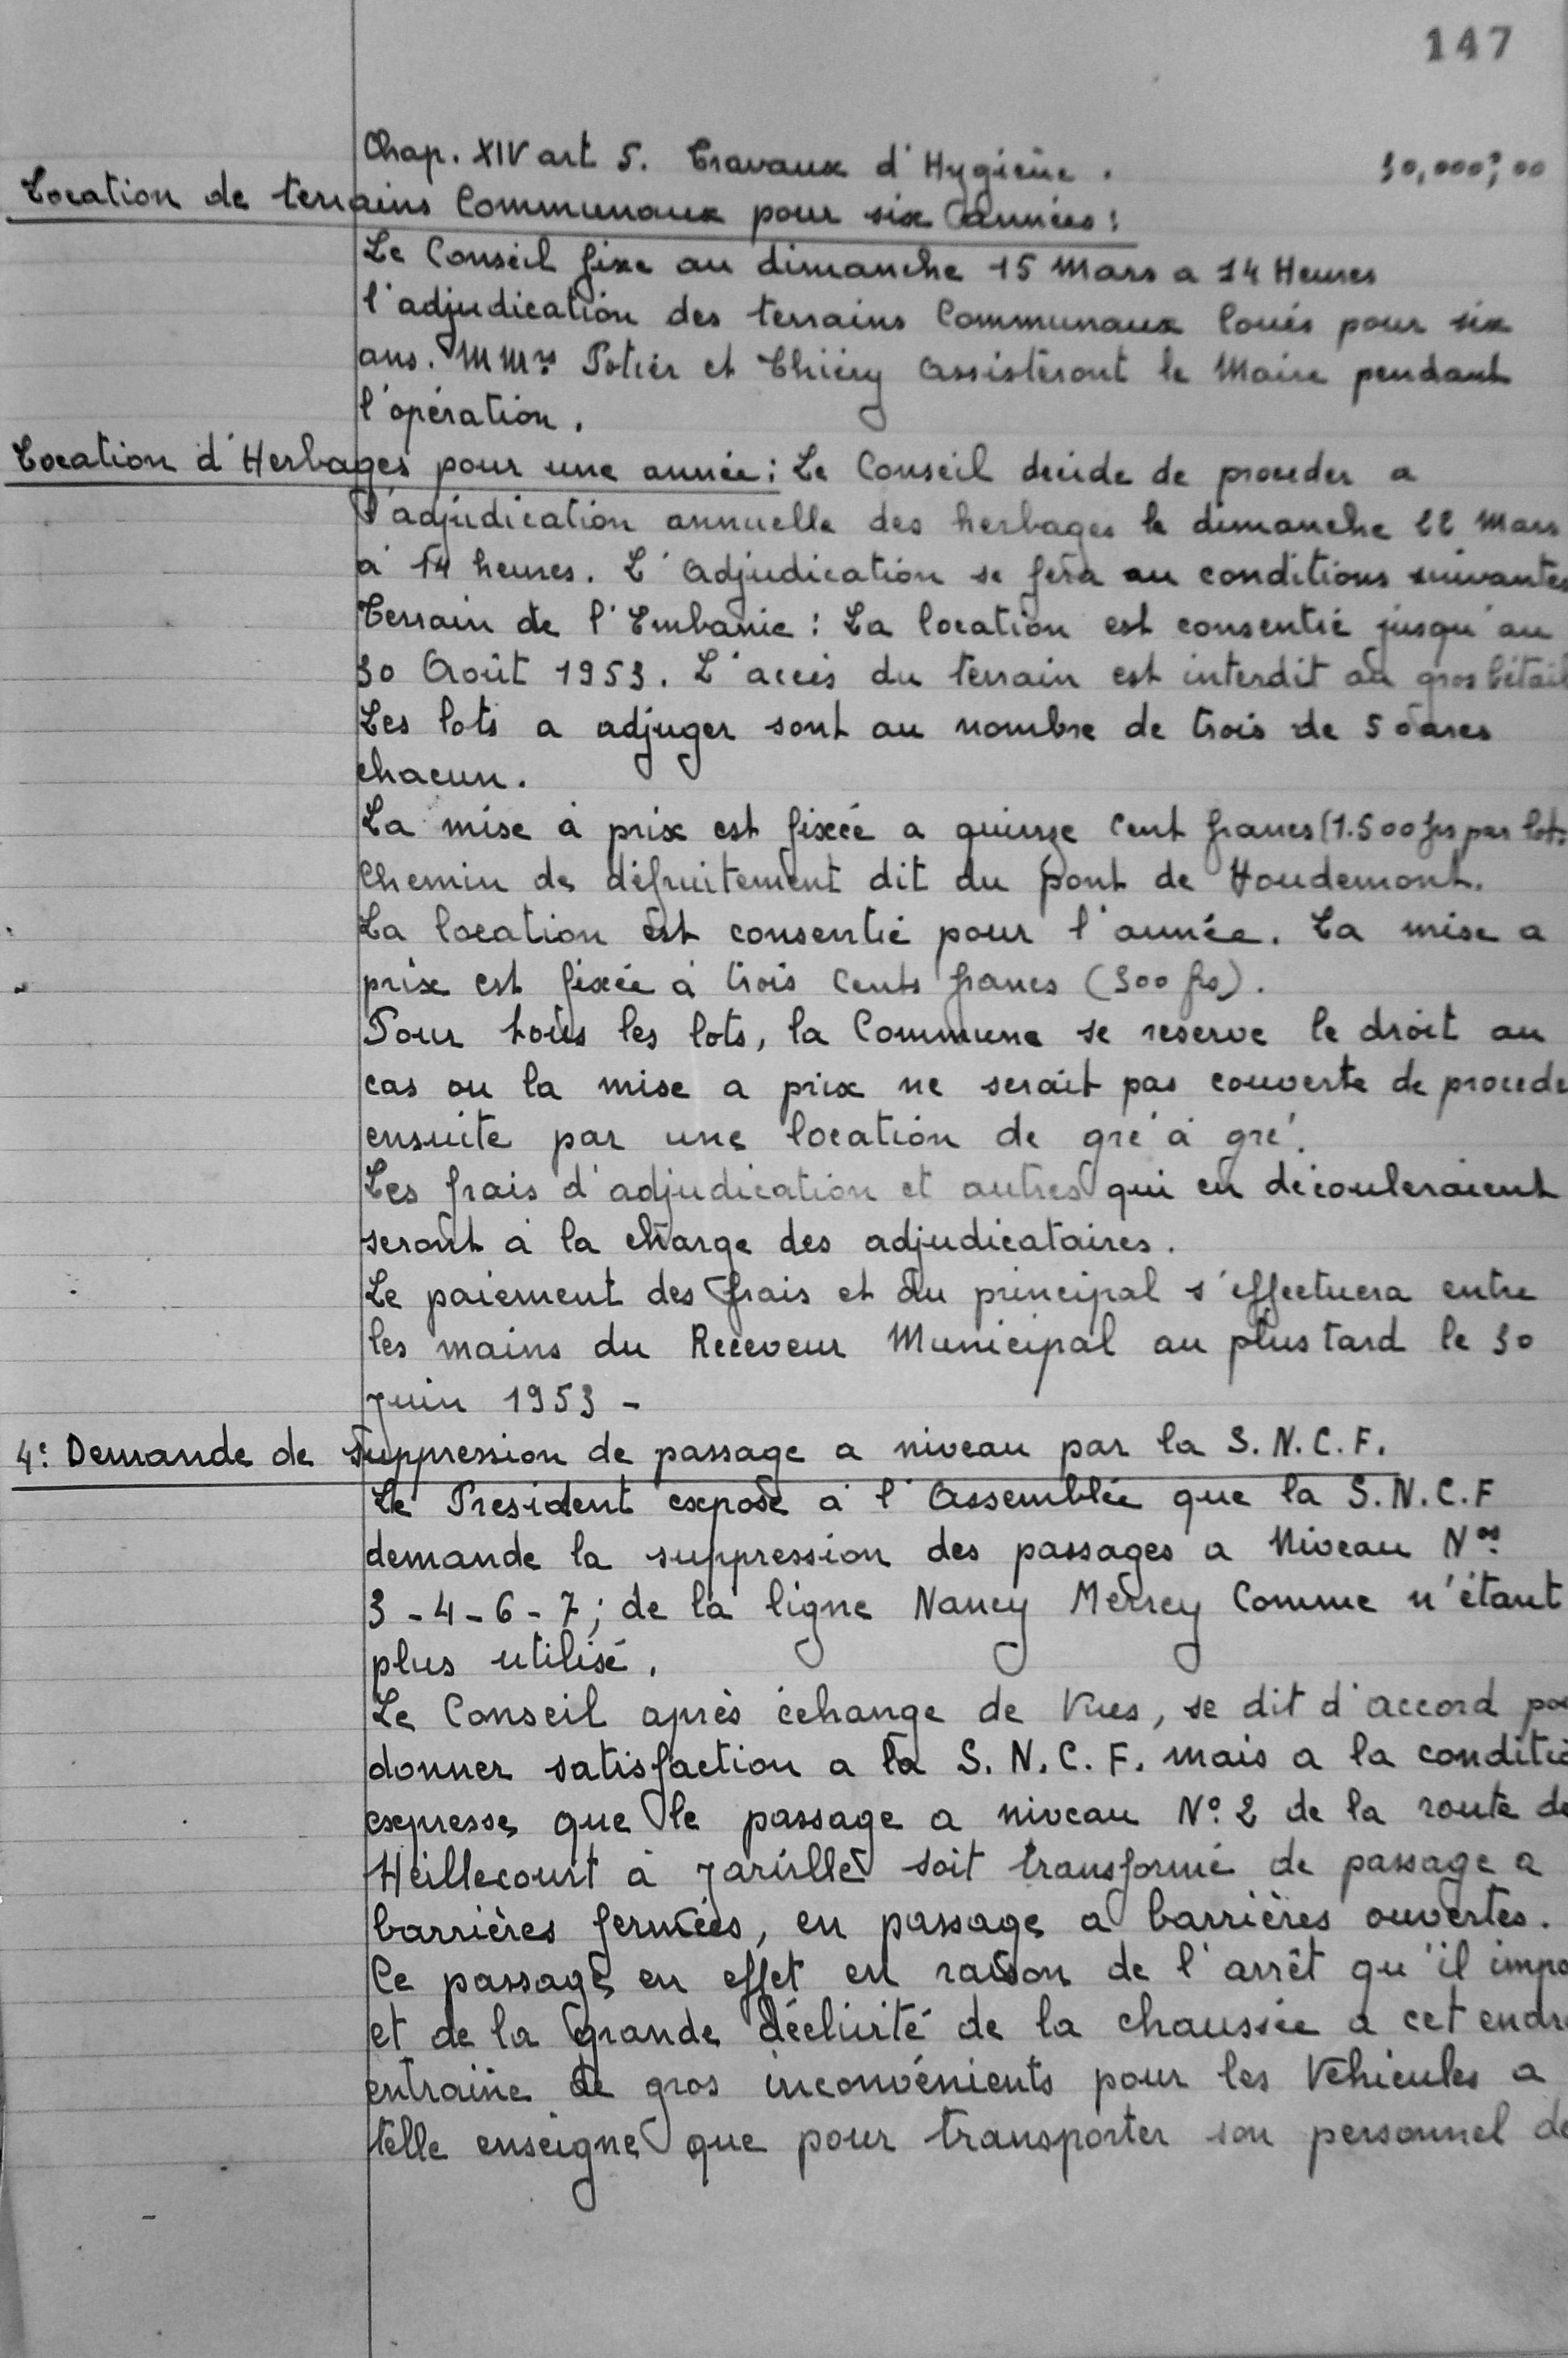 147
Chap. XIV art 5. Travaux d'Hygiène. 30,000f,00
Location de terrains Communaux pour six années :
Le Conseil fixe au dimanche 15 Mars a 14 Heures
l'adjudication des terrains Communaux loués pour six
ans. MMrs Potier et Thiéry Assisteront le Maire pendant
l'opération.
Location d'Herbages pour une année : Le Conseil décide de proceder a
l'adjudication annuelle des herbages le dimanche 22 Mars
à 14 heures. L'Adjudication se fera au conditions suivantes
Terrain de l'Embanie : La location est consentie jusqu'au
30 Août 1953. L'accès du terrain est interdit au gros bétail
Les lots a adjuger sont au nombre de trois de 50 ares
chacun.
La mise à prix est fixée a quinze Cent francs (1.500 frs par lot.
Chemin de défruitement dit du pont de Houdemont.
La location est consentie pour l'année. La mise a
prix est fixée à trois Cents francs (300 frs).
Pour tous les lots, la Commune se reserve le droit au
cas ou la mise a prix ne serait pas couverte de procede
ensuite par une location de gré à gré.
Les frais d'adjudication et autres qui en découleraient
seront à la charge des adjudicataires.
Le paiement des frais et du principal s'effectuera entre
les mains du Receveur Municipal au plus tard le 30
Juin 1953 -
4e: Demande de Suppression de passage a niveau par la S.N.C.F.
Le President expose à l'Assemblée que la S.N.C.F
demande la suppression des passages a Niveau Nos
3 - 4 - 6 - 7 ; de la ligne Nancy Merrey Comme n'étant
plus utilisé.
Le Conseil après échange de Vues, se dit d'accord pou
donner satisfaction a la S.N.C.F. mais a la conditio
expresse que le passage a niveau No 2 de la route de
Heillecourt à Jarville soit transformé de passage a
barrières fermées, en passage a barrières ouvertes.
Ce passage en effet en raison de l'arrêt qu'il impo
et de la grande déclivité de la chaussée a cet endr
entraine de gros inconvénients pour les Vehicules a
telle enseigne que pour transporter son personnel de